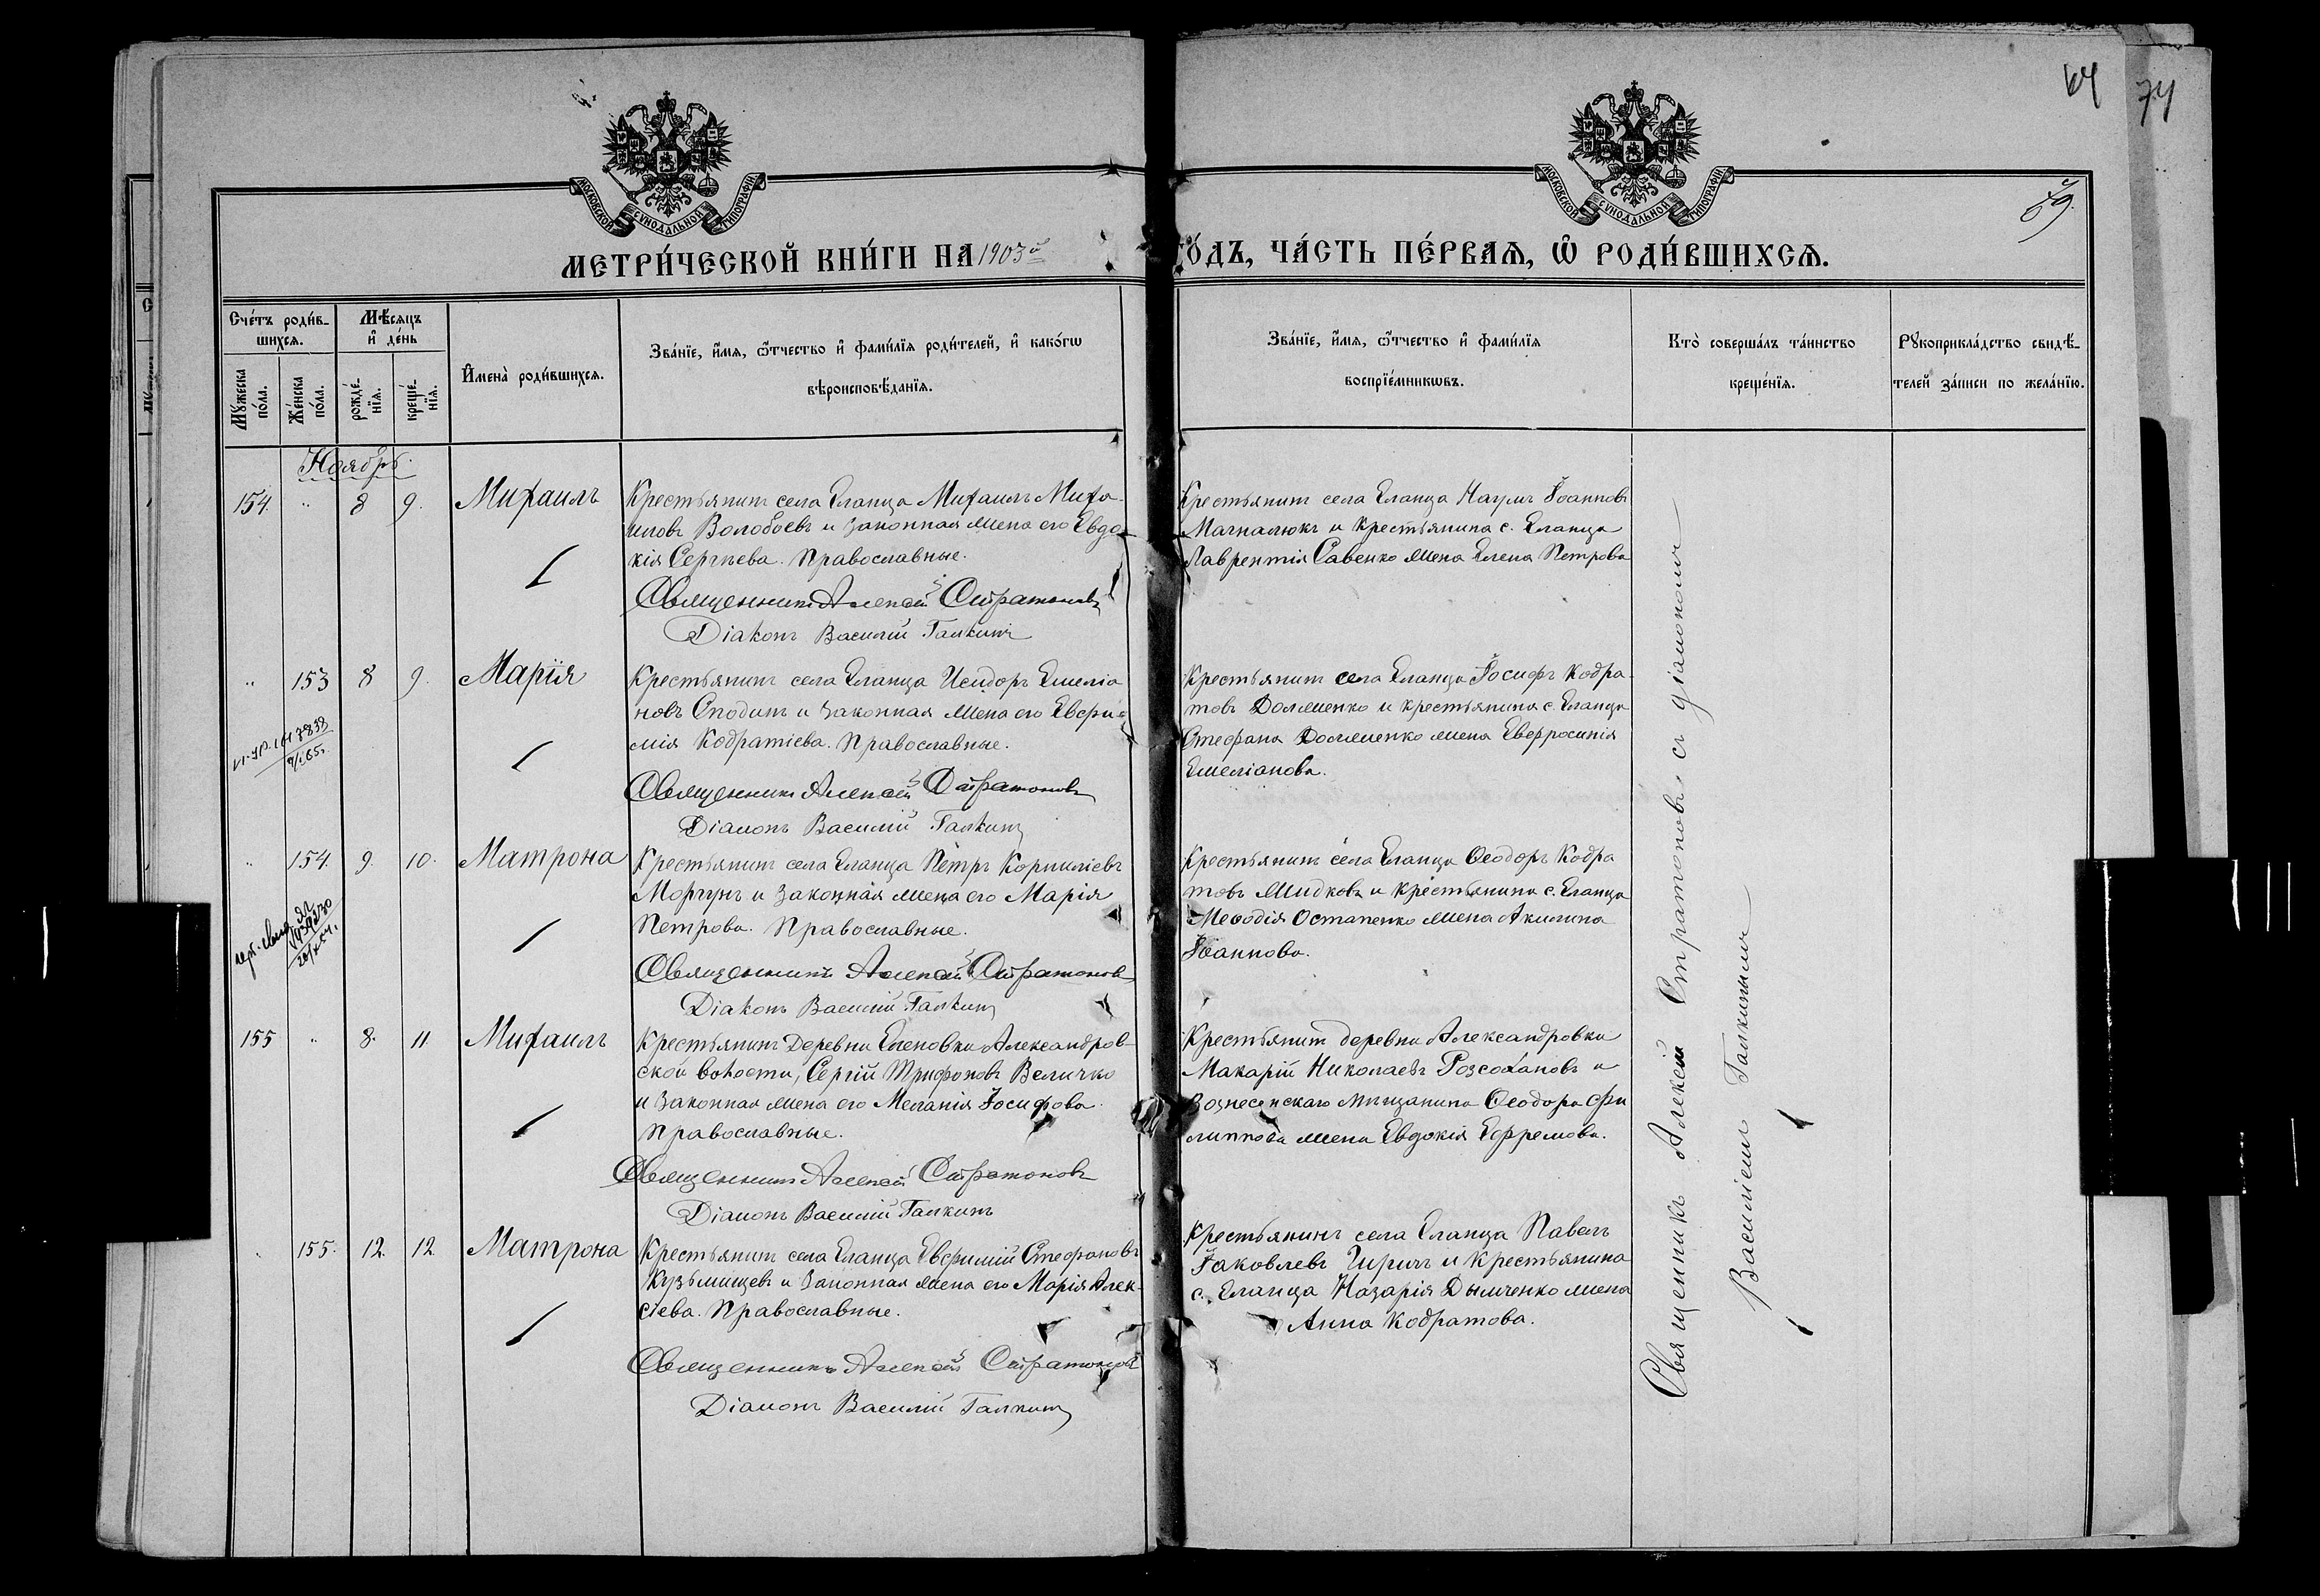 64
74
79.
МОСКОВСКОЙ СѴНОДАЛЬНОЙ ТИПОГРАФІИ
МОСКОВСКОЙ СѴНОДАЛЬНОЙ ТИПОГРАФІИ
МЕТРИ́ЧЕСКОЙ КНИ́ГИ НА 1903й
ГО́ДЪ, ЧА́СТЬ ПЕ́РВАѦ, Ѽ РОДИ́ВШИХСѦ.
Сче́тъ роди́в-
шихсѧ.
Мѣ́сяцъ
и҆ де́нь
Мꙋ́жеска
по́ла.
Же́нска
по́ла.
рожде́-
нїѧ.
креще́-
нїѧ.
И҆мена̀ роди́вшихсѧ.
Зва́нїе, и҆́мѧ, ѻ҆́тчество и҆ фами́лїѧ роди́телей, и҆ како́гѡ
вѣроисповѣ́данїѧ.
Зва́нїе, и҆́мѧ, ѻ҆́тчество и҆ фами́лїѧ
воспрїе́мникѡвъ.
Кто̀ соверша́лъ та́инство
креще́нїѧ.
Рꙋкоприкла́дство свидѣ́-
телей за́писи по жела́нїю.
Ноябрь.
154. " 8 9. Михаилъ
Крестьянинъ села Еланца Михаилъ Миха-
иловъ Волобоевъ и законная жена его Евдо-
кія Сергѣева. Православные.
Священникъ Алексѣй Стратоновъ
Діаконъ Василій Галкинъ
Крестьянинъ села Еланца Наумъ Іоанновъ
Магналюкъ и крестьянина с. Еланца
Лаврентія Савенко жена Елена Петрова
" 153 8 9. Марія
Крестьянинъ села Еланца Исидоръ Емеліа
новъ Сподинъ и законная жена его Евфи-
мія Кодратіева. Православные.
Священникъ Алексѣй Стратоновъ
Діаконъ Василій Галкинъ
Крестьянинъ села Еланца Іосифъ Кодра-
товъ Долженко и крестьянина с. Еланца
Стефана Долженко жена Евфросинія
Емеліанова.
" 154. 9. 10. Матрона
Крестьянинъ села Еланца Петръ Корниліевъ
Моргунъ и законная жена его Марія
Петрова. Православные.
Священникъ Алексѣй Стратоновъ
Діаконъ Василій Галкинъ
Крестьянинъ села Еланца Ѳеодоръ Кодра
товъ Жидковъ и крестьянина с. Еланца
Меѳодія Остапенко жена Акилина
Іоаннова.
155 " 8. 11 Михаилъ
Крестьянинъ деревни Еленовки Александров-
ской волости, Сергій Трифоновъ Величко
и законная жена его Меланія Іосифова.
Православные.
Священникъ Алексѣй Стратоновъ
Діаконъ Василій Галкинъ
Крестьянинъ деревни Александровки
Макарій Николаевъ Розсохановъ и
Вознесенскаго мѣщанина Ѳеодора Фи
липпова жена Евдокія Ефремова.
" 155. 12. 12 Матрона
Крестьянинъ села Еланца Евфимій Стефановъ
Кузьмищевъ и законная жена его Марія Алек-
сѣева. Православные.
Священникъ Алексѣй Стратоновъ
Діаконъ Василій Галкинъ
Крестьянинъ села Еланца Павелъ
Іаковлевъ Чиричъ и крестьянина
с. Еланца Назарія Дымченко жена
Анна Кодратова.
Священникъ Алексѣй Стратоновъ съ діакономъ
Василіемъ Галкинымъ